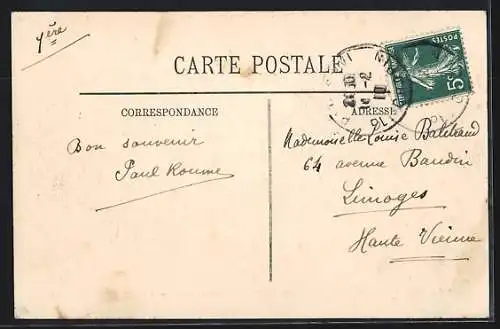 1ère
CARTE POSTALE
CORRESPONDANCE
ADRESSE
POSTES
5
Bon souvenir
Paul Roume
Mademoiselle Louise
64 avenue Baudin
Limoges
Haute Vienne